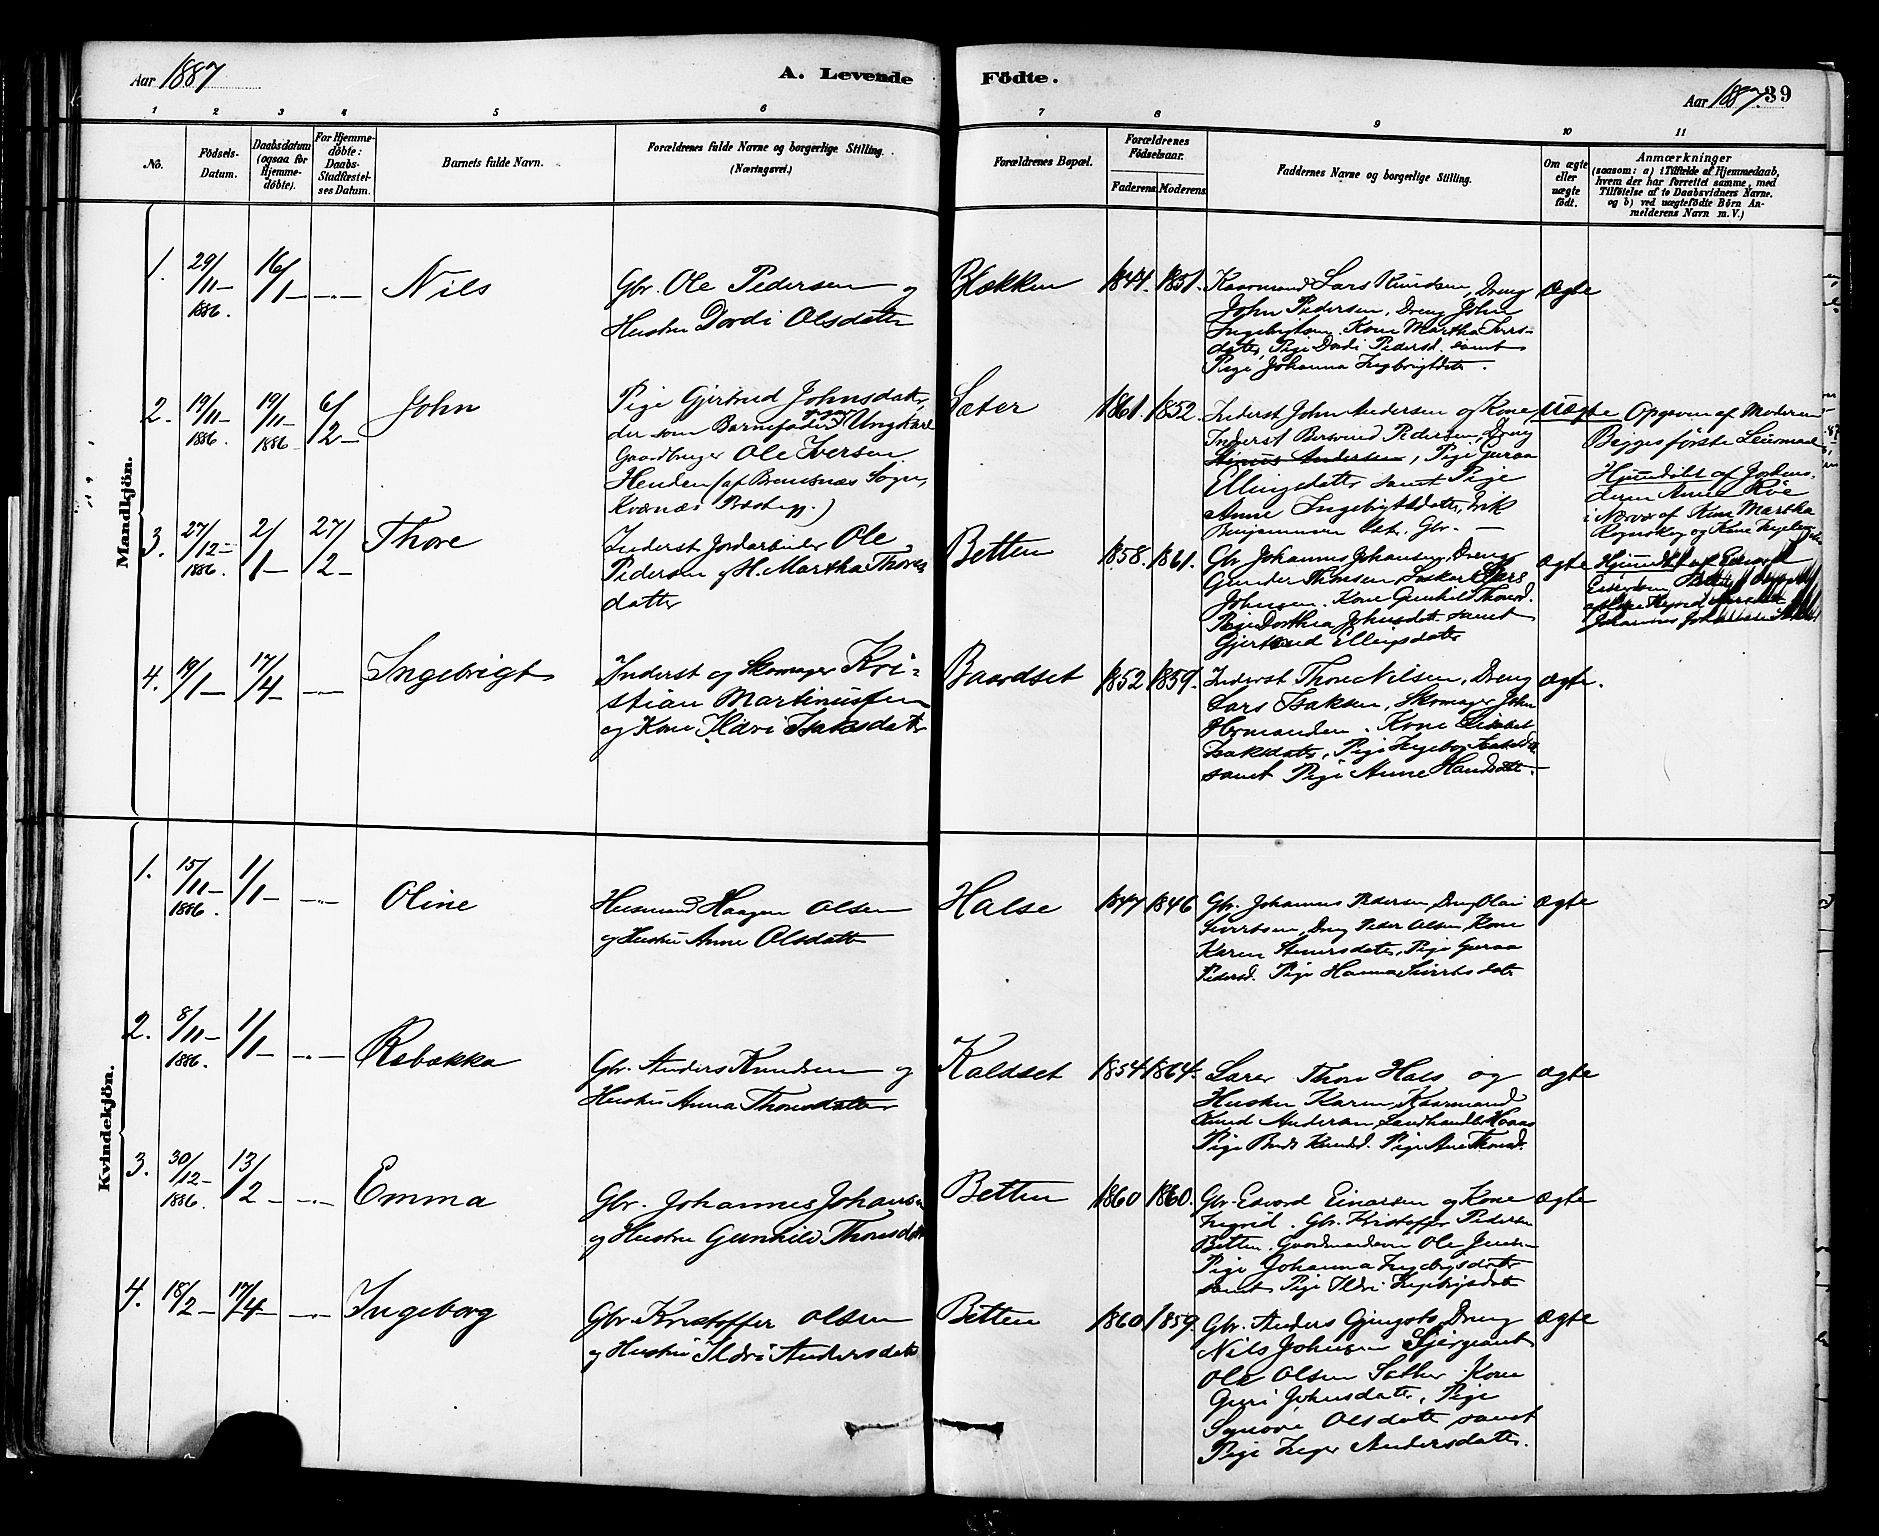 Aar 1887
A. Levende
Födte.
Aar 1887. 39
1 2 3 4 5 6 7 8 9 10 11
No.
Födsels-Datum.
Daabsdatum (ogsaa for Hjemmedöbte).
For Hjemmedöbte: Daabs-Stadfæstelses Datum.
Barnets fulde Navn.
Forældrenes fulde Navne og borgerlige Stilling.
(Næringsvei.)
Forældrenes Bopæl.
Forældrenes Födselsaar.
Faderens. Moderens.
Faddernes Navne og borgerlige Stilling.
Om ægte eller uægte födt.
Anmærkninger
(saasom: a) i Tilfælde af Hjemmedaab,
hvem der har forrettet samme, med
Tilföielse af to Daabsvidners Navne.
og b) ved uægtefödte Börn An-
melderens Navn m. V.)
Mandkjön.
1. 29/11 1886. 16/1 Nils
Gbr. Ole Pedersen og
Hustru Dordi Olsdatter
Blekken 1844. 1851.
Kaarmand Lars Knudsen, Dreng
John Pedersen, Dreng John
Ingebrigtsen. Kone Martha Lars-
datter, Pige Dordi Pedersd. samt
Pige Johanna Ingbrigtdatr.
Ægte
2. 19/11 1886. 19/11 1886 6/2 John
Pige Gjertrud Johnsdatter
der som Barnefader opgav Ungkarl
Gaardbruger Ole Iversen
Henden (af Bremsnæs Sogn,
Kvernæs Præstegj.)
Sæter 1861. 1852.
Inderst John Andersen og Kone
Inderst Bersvend Pedersen, Dreng
Andersen, Pige Guraa
Ellingsdatter samt Pige
Anne Ingebrigtsdatter, Erik
Benjaminsen Gbr.
Uægte
Opgiven af Moderen
Begges förste Leiermaal
Hjemdöbt af Jordmo-
deren Anne Röe
i Nærvær af Kone Martha
og Kone Ingeborg
3. 27/12 1886. 2/1 27/2 Thore
Inderst Jordarbeider Ole
Pedersen og H. Martha Thores
datter
Betten 1858. 1861.
Gbr. Johannes Johansen, Dreng
Gunder Thoresen Lars
Johnsen. Kone Gunhild Thoresd.
Pige Dorthea Johnsdatr. samt
Gjertrud Ellingsdatter
ægte
Hjemdöbt af Edvard
Johannes Johansen
4. 19/1 17/4 Ingebrigt
Inderst og Skomager Kri-
stian Martinussen
og Kone Ildri Isaksdatter
Baardset 1852 1859.
Inderst Thore Nilsen, Dreng
Lars Isaksen, Skomager John
Hermandsen. Kone Lisabet
Isaksdatter, Pige Ingeborg
samt Pige Anne Hansdatr.
ægte.
Kvindekjön.
1. 15/11 1886. 1/1 Oline
Husmand Haagen Olsen
og Hustru Anne Olsdatter
Halse 1846
Gbr. Johannes Pedersen, Dreng Olai
Sivertsen, Dreng Peder Olsen, Kone
Karen datter, Pige Guraa
Pedersd. Pige Hanna Sivertsdatr
ægte
2. 8/11 1886. 1/1 Rebekka
Gbr. Anders Knudsen og
Hustru Anna Thoresdatter
Kaldset 1854 1864.
Lærer Thore Hals og
Hustru Karen, Kaarmand
Knud Andersen, Landhandler
Pige Knudsd. Pige Ane Thoresd.
ægte
3. 30/12 1886. 13/2 Emma
Gbr. Johannes Johansen
og Hustru Gunhild Thoresdatter
Betten 1860 1860.
Gbr. Edvard Einarsen og Kone
Ingrid. Gbr. Kristoffer Pedersen
Betten. Ole Jensen
Pige Johanna Ingebrigtsdatr
samt Pige Ildri Ingebrigtsdatr
ægte
4. 18/2 17/4 Ingeborg
Gbr. Kristoffer Olsen
og Hustru Ildri Andersdatr
Betten 1860 1859.
Gbr. Anders Dreng
Nils Johnsen Serjeant
Ole Olsen Sæther Kone
Guri Johnsdatter, Pige
Synnöve Olsdatter samt
Pige Inger Andersdatter.
ægte